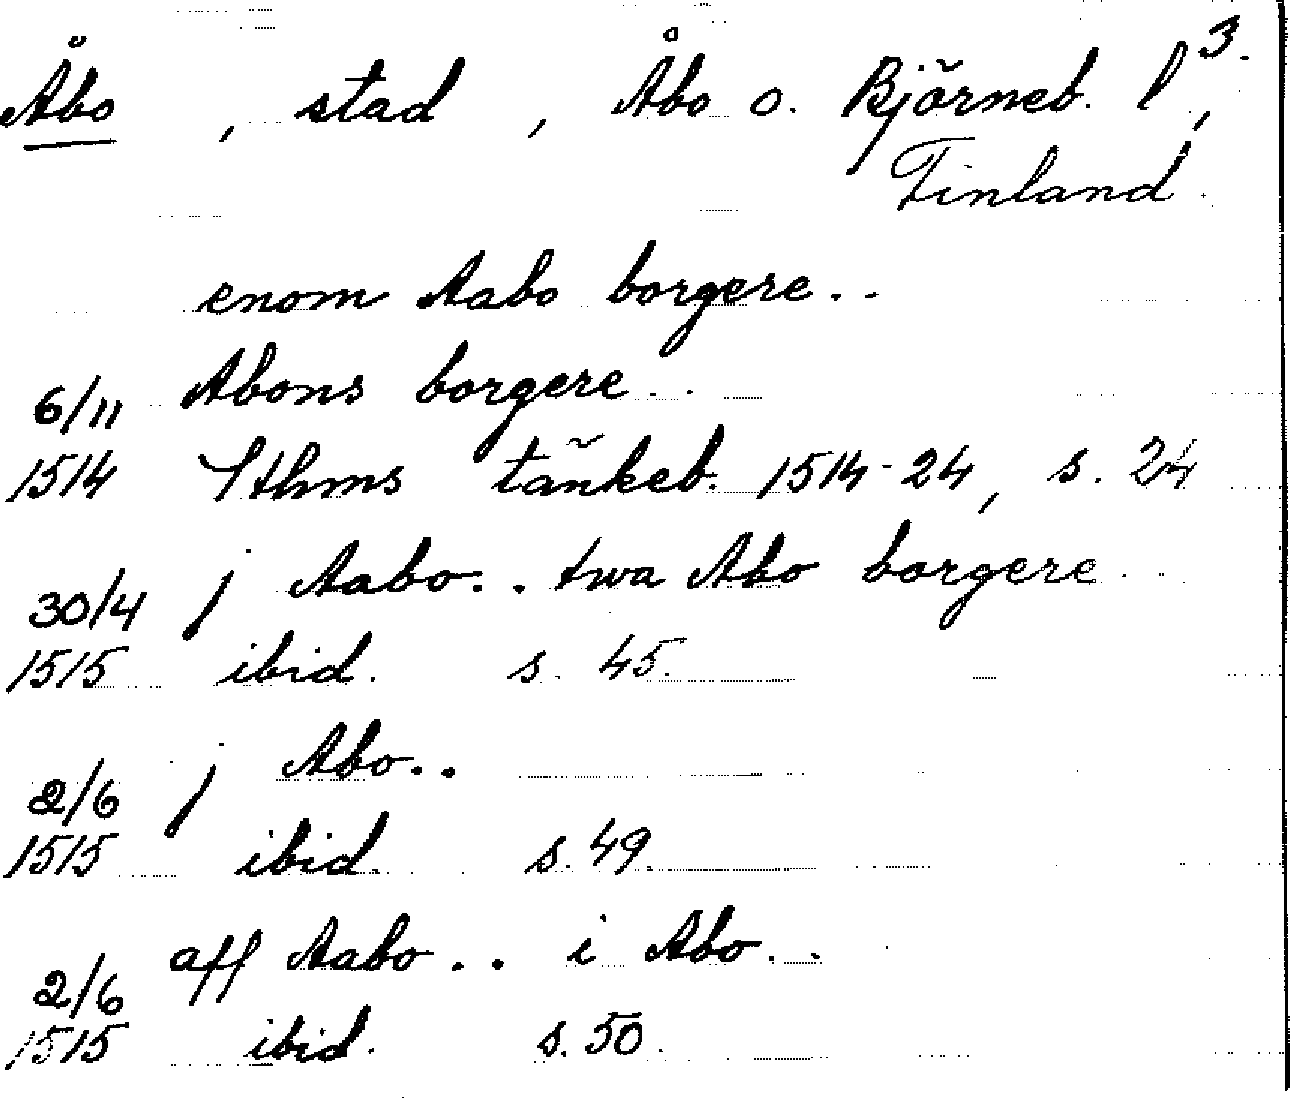 3.
Åbo, stad, Åbo o. Björneb. l,
Finland.
enom Aabo borgere..
6/11 Abons borgere..
1514 Sthms tänkeb. 1514-24, s. 24
30/4 j Aabo.. twa Abo borgere..
1515 ibid. s. 45.
2/6 j Abo..
1515 ibid. s. 49.
2/6 aff Aabo.. i Abo..
1515 ibid. s. 50.